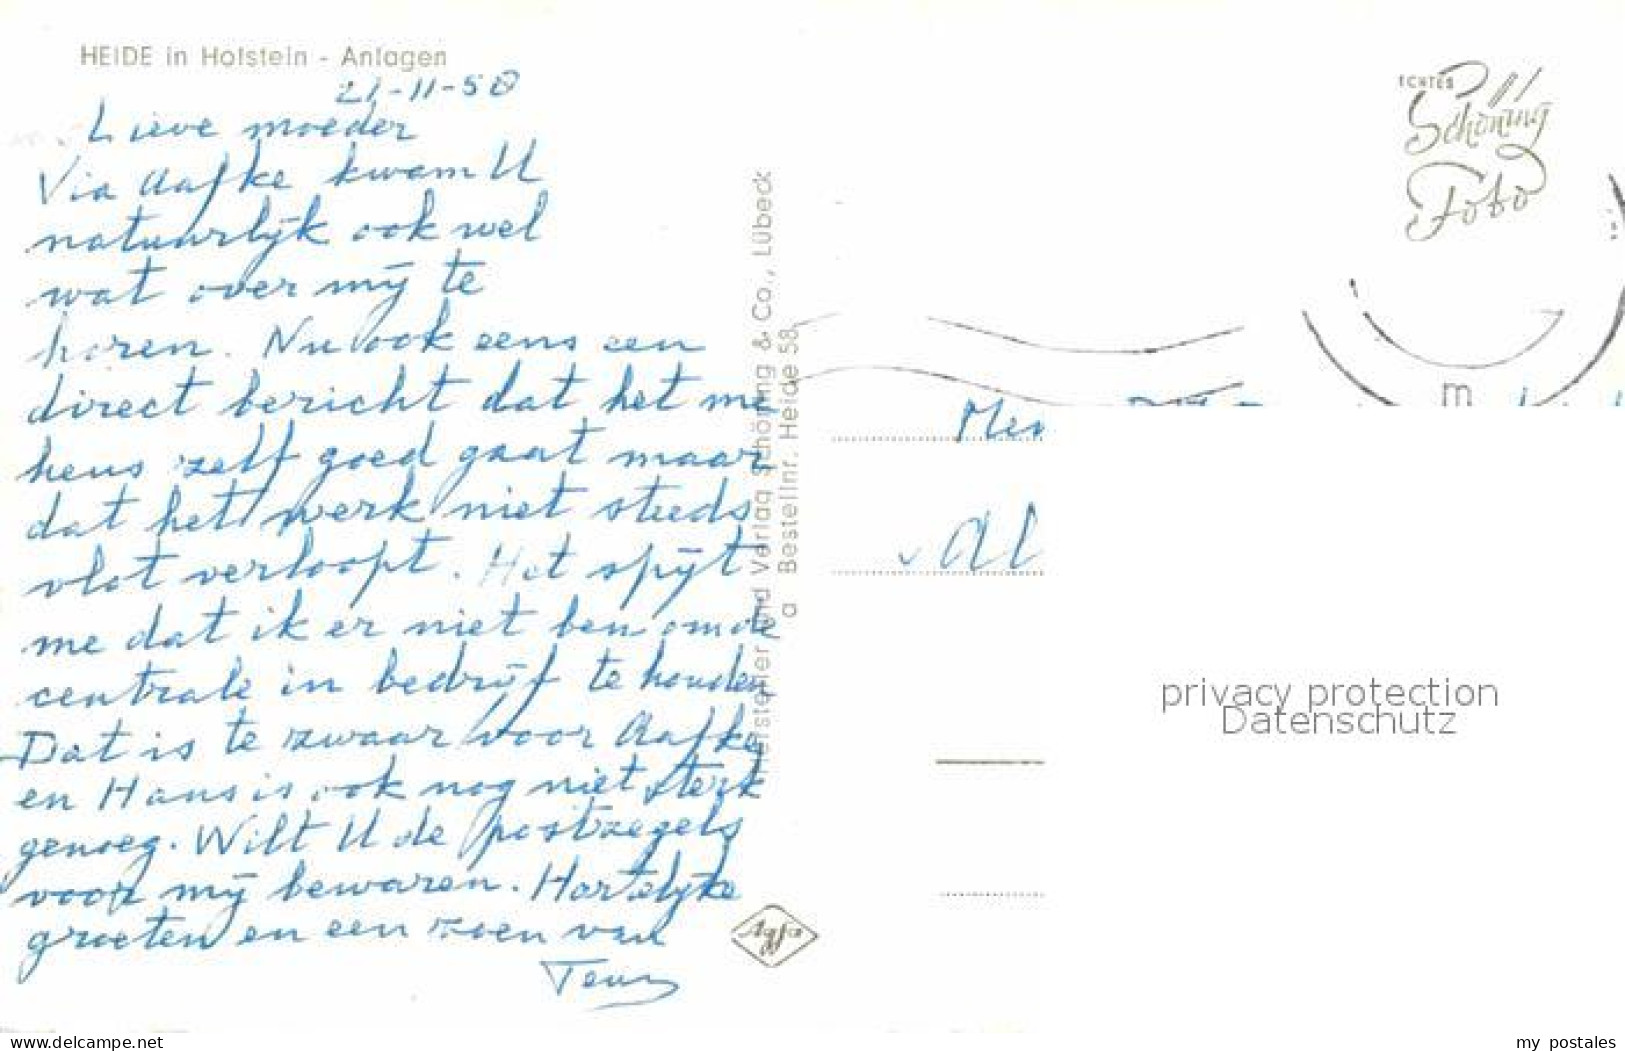 HEIDE in Holstein - Anlagen
21-11-58
Lieve moeder
Via Aafke kwam U
natuurlijk ook wel
wat over mij te
horen. Nu ook eens een
direct bericht dat het me
heus zelf goed gaat maar
dat het werk niet steeds
vlot verloopt. Het spijt
me dat ik er niet ben om de
centrale in bedrijf te houden
Dat is te zwaar voor Aafke
en Hans is ook nog niet sterk
genoeg. Wilt U de postzegels
voor mij bewaren. Hartelijke
groeten en een zoen van
Teun
Hersteller und Verlag Schöning & Co., Lübeck
a Bestellnr. Heide 58
Agfa
ECHTES
Schöning
Foto
m
privacy protection
Datenschutz
www.delcampe.net
my_postales